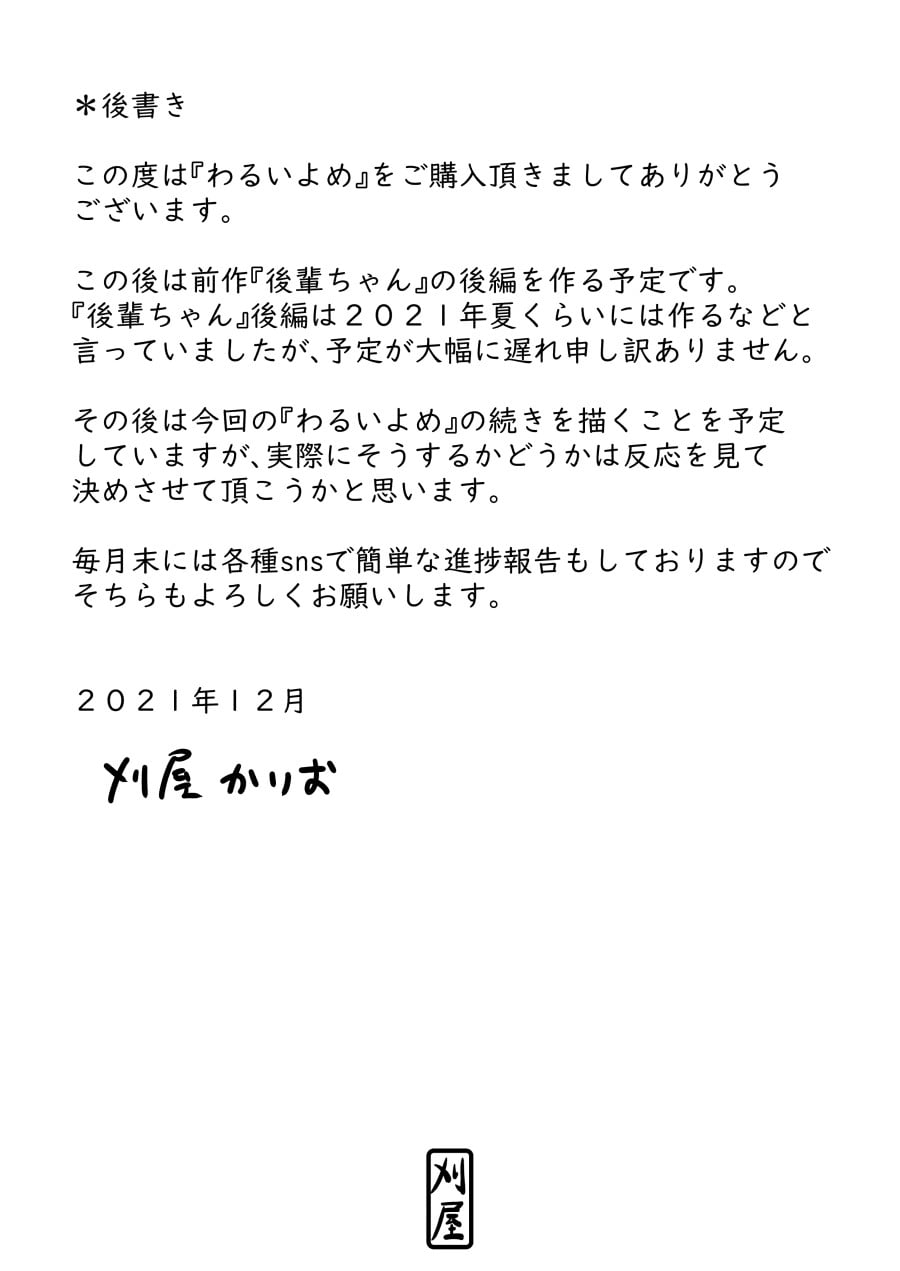 ＊後書き
この度は『わるいよめ』をご購入頂きましてありがとう
ございます。
この後は前作『後輩ちゃん』の後編を作る予定です。
『後輩ちゃん』後編は２０２１年夏くらいには作るなどと
言っていましたが、予定が大幅に遅れ申し訳ありません。
その後は今回の『わるいよめ』の続きを描くことを予定
していますが、実際にそうするかどうかは反応を見て
決めさせて頂こうかと思います。
毎月末には各種snsで簡単な進捗報告もしておりますので
そちらもよろしくお願いします。
２０２１年１２月
刈屋 かりお
刈
屋